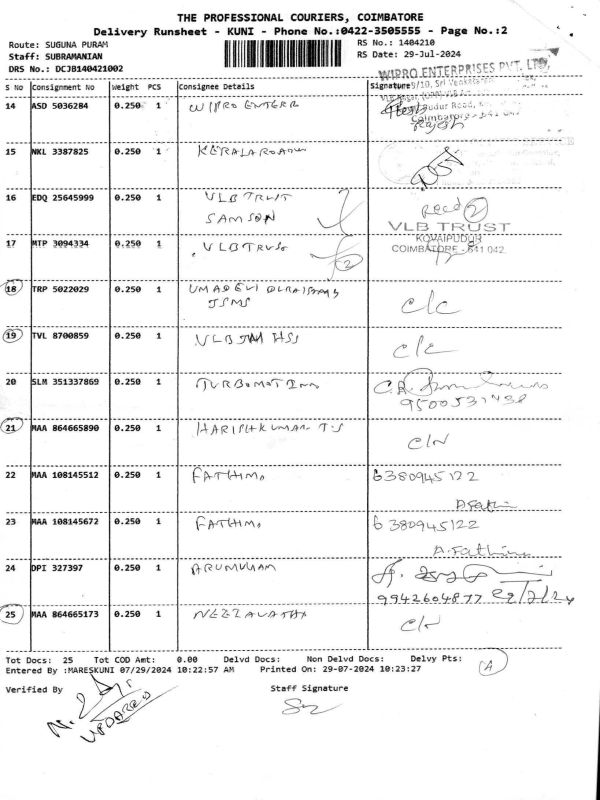 THE PROFESSIONAL COURIERS, COIMBATORE
Delivery Runsheet - KUNI - Phone No.:0422-3505555 - Page No.:2
Route: SUGUNA PURAM RS No.: 1404210
Staff: SUBRAMANIAN RS Date: 29-Jul-2024
DRS No.: DCJB140421002
WIPRO ENTERPRISES PVT. LTD,
S No Consignment No Weight PCS Consignee Details Signature
14 ASD 5036284 0.250 1 WIPRO ENTERR
Rajesh
15 NKL 3387825 0.250 1
16 EDQ 25645999 0.250 1 VLB TRUST
SAMSON
Recd 2
VLB TRUST
KOVAIPUDUR
COIMBATORE - 641 042.
17 MTP 3094334 0.250 1 VLB TRUST
2
18 TRP 5022029 0.250 1 UMADEVI
C/C
19 TVL 8700859 0.250 1 VLB HSS
C/C
20 SLM 351337869 0.250 1
21 MAA 864665890 0.250 1 HARISHKUMAR T.S
C/N
22 MAA 108145512 0.250 1 FATHIMA
6380945122
A. Fathi
23 MAA 108145672 0.250 1 FATHIMA
6380945122
A. Fathima
24 DPI 327397 0.250 1 ARUMUGAM
9942604877 29/7/24
25 MAA 864665173 0.250 1
C/N
Tot Docs: 25 Tot COD Amt: 0.00 Delvd Docs: Non Delvd Docs: Delvy Pts:
A
Entered By :MARESKUNI 07/29/2024 10:22:57 AM Printed On: 29-07-2024 10:23:27
Verified By Staff Signature
UPDATED